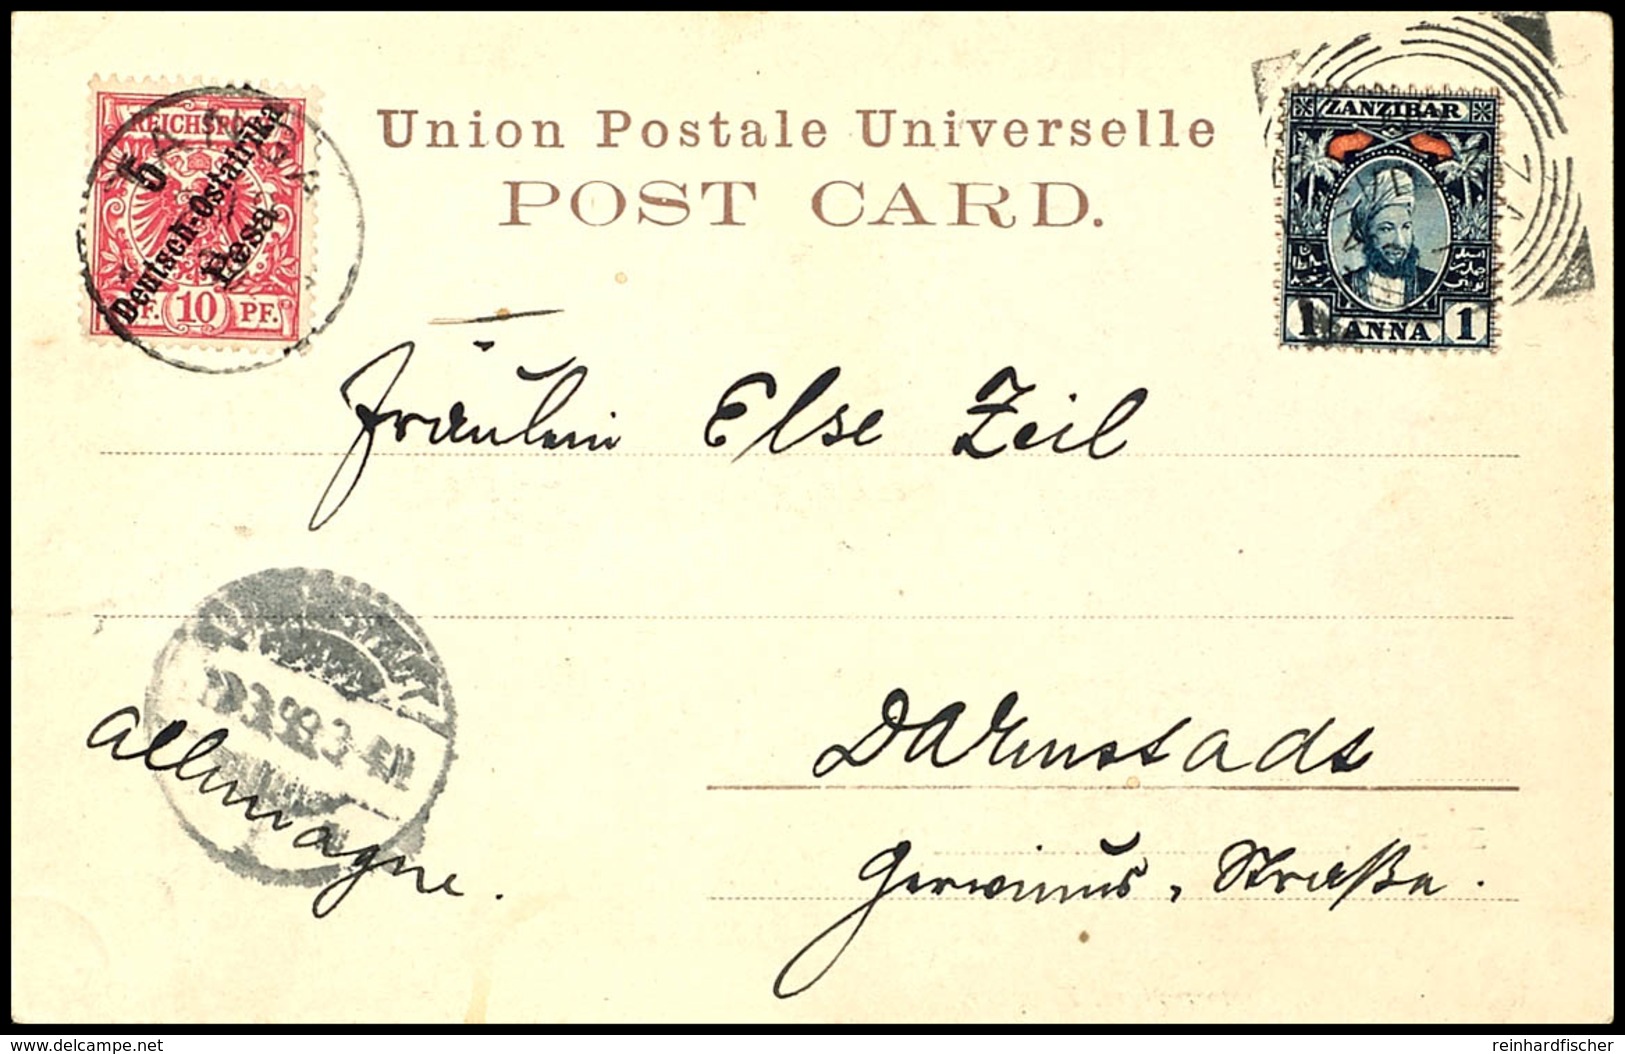 Union Postale Universelle
POST CARD.
REICHSPOST
5 Deutsch-Ostafrika
Pesa
10 PF.
ZANZIBAR
1 ANNA 1
Fräulein Else Zeil
Darmstadt
Gervinus-Straße.
Allemagne.
delcampe.net
reinhardfischer